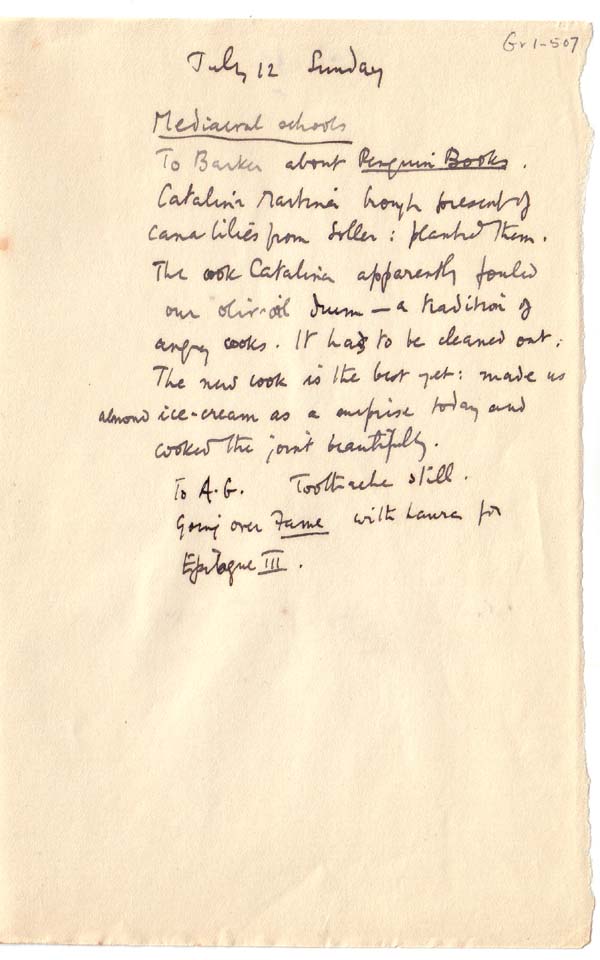 Gr1-507
July 12 Sunday
Mediaeval schools
To Barker about Penguin Books.
Catalina Martinez brought present of
cana lilies from Soller: planted them.
The cook Catalina apparently fouled
our olive-oil drum — a tradition of
angry cooks. It had to be cleaned out.
The new cook is the best yet: made us
almond ice-cream as a surprise today and
cooked the joint beautifully.
To A.G. Toothache still.
Going over Fame with Laura for
Epilogue III.